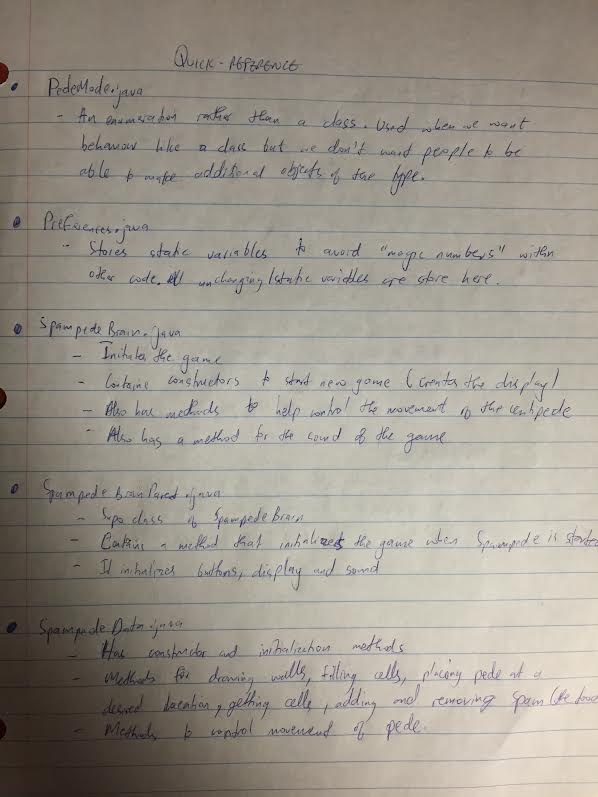 QUICK-REFERENCE
PedeMode.java
- An enumeration rather than a class. Used when we want
behaviour like a class but we don't want people to be
able to make additional objects of the type.
Preferences.java
- Stores static variables to avoid "magic numbers" within
other code. All unchanging/static variables are store here.
SpampedeBrain.java
- Initiates the game
- Contains constructors to start new game (creates the display)
- Also has methods to help control the movement of the centipede
- Also has a method for the sound of the game
SpampedeBrainParent.java
- Supa class of SpampedeBrain
- Contains a method that initializes the game when Spampede is started
- It initializes buttons, display and sound
SpampedeData.java
- Has constructor and initialization methods
- Methods for drawing walls, filling cells, placing pede at a
desired location, getting cells, adding and removing spam (the food
- Methods to control movement of pede.